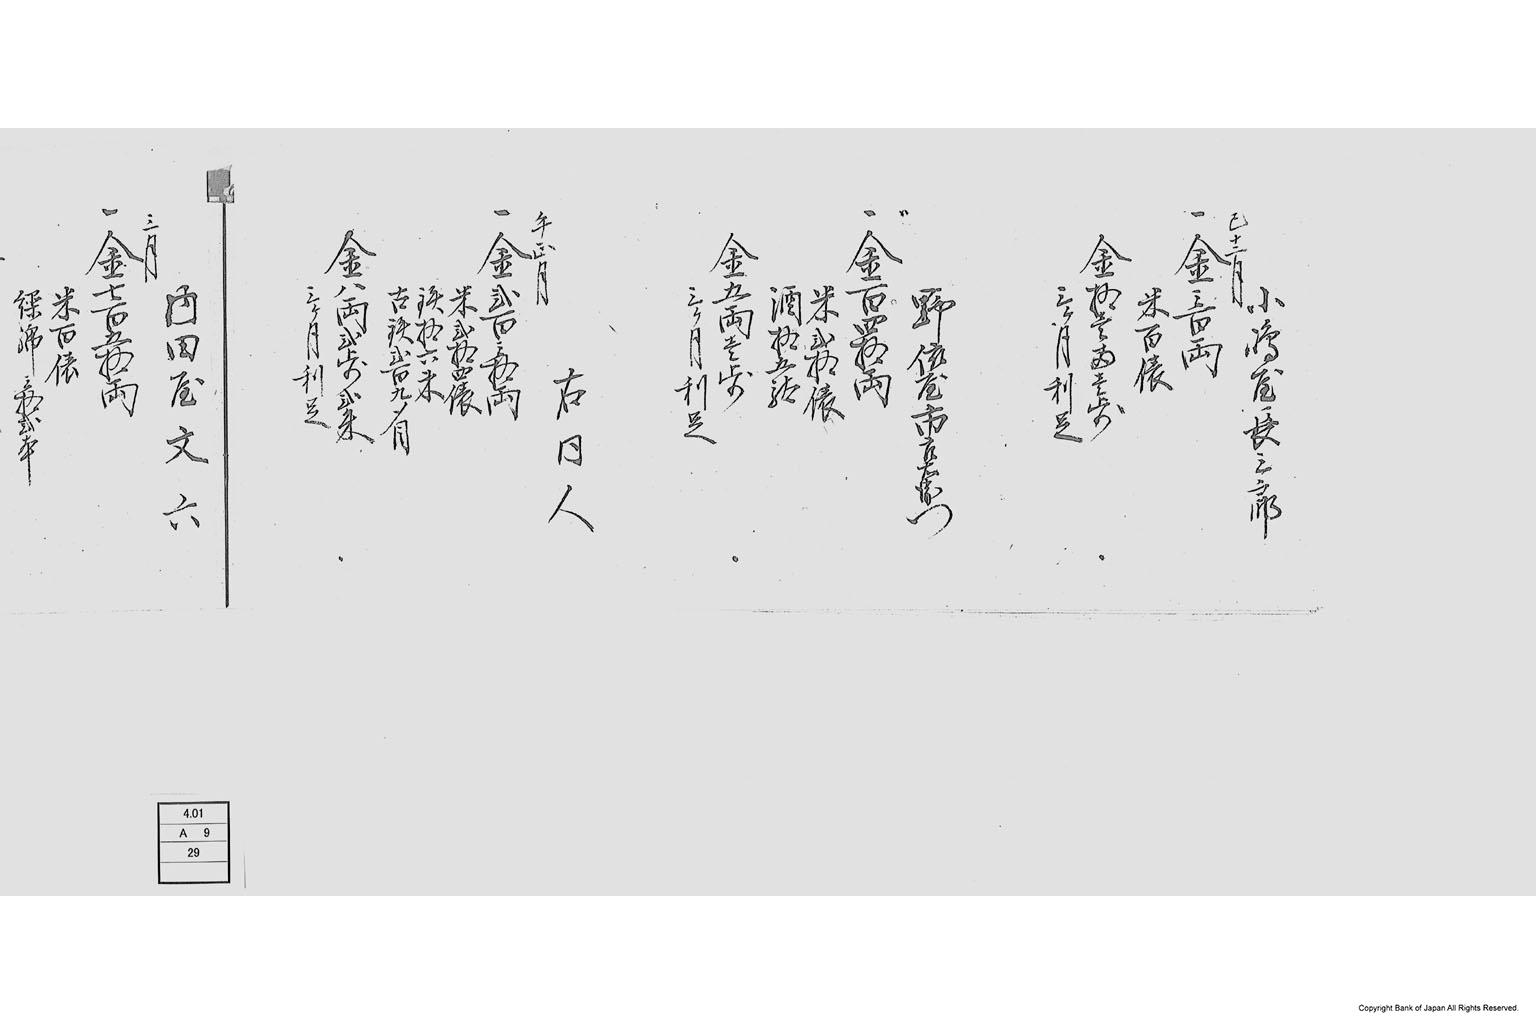 小嶋屋長三郎
巳十二月
一金三百両
米百俵
金拾壱両壱歩
三ヶ月利足
野依屋市左衛門
〃
一金百四拾両
米弐拾俵
酒拾五駄
金五両壱歩
三ヶ月利足
右同人
午正月
一金弐百両
米弐拾四俵
鉄拾六束
古鉄弐百九〆目
金八両弐歩弐朱
三ヶ月利足
内田屋文六
三月
一金七百五拾両
米百俵
繰綿
4.01
A 9
29
Copyright Bank of Japan All Rights Reserved.